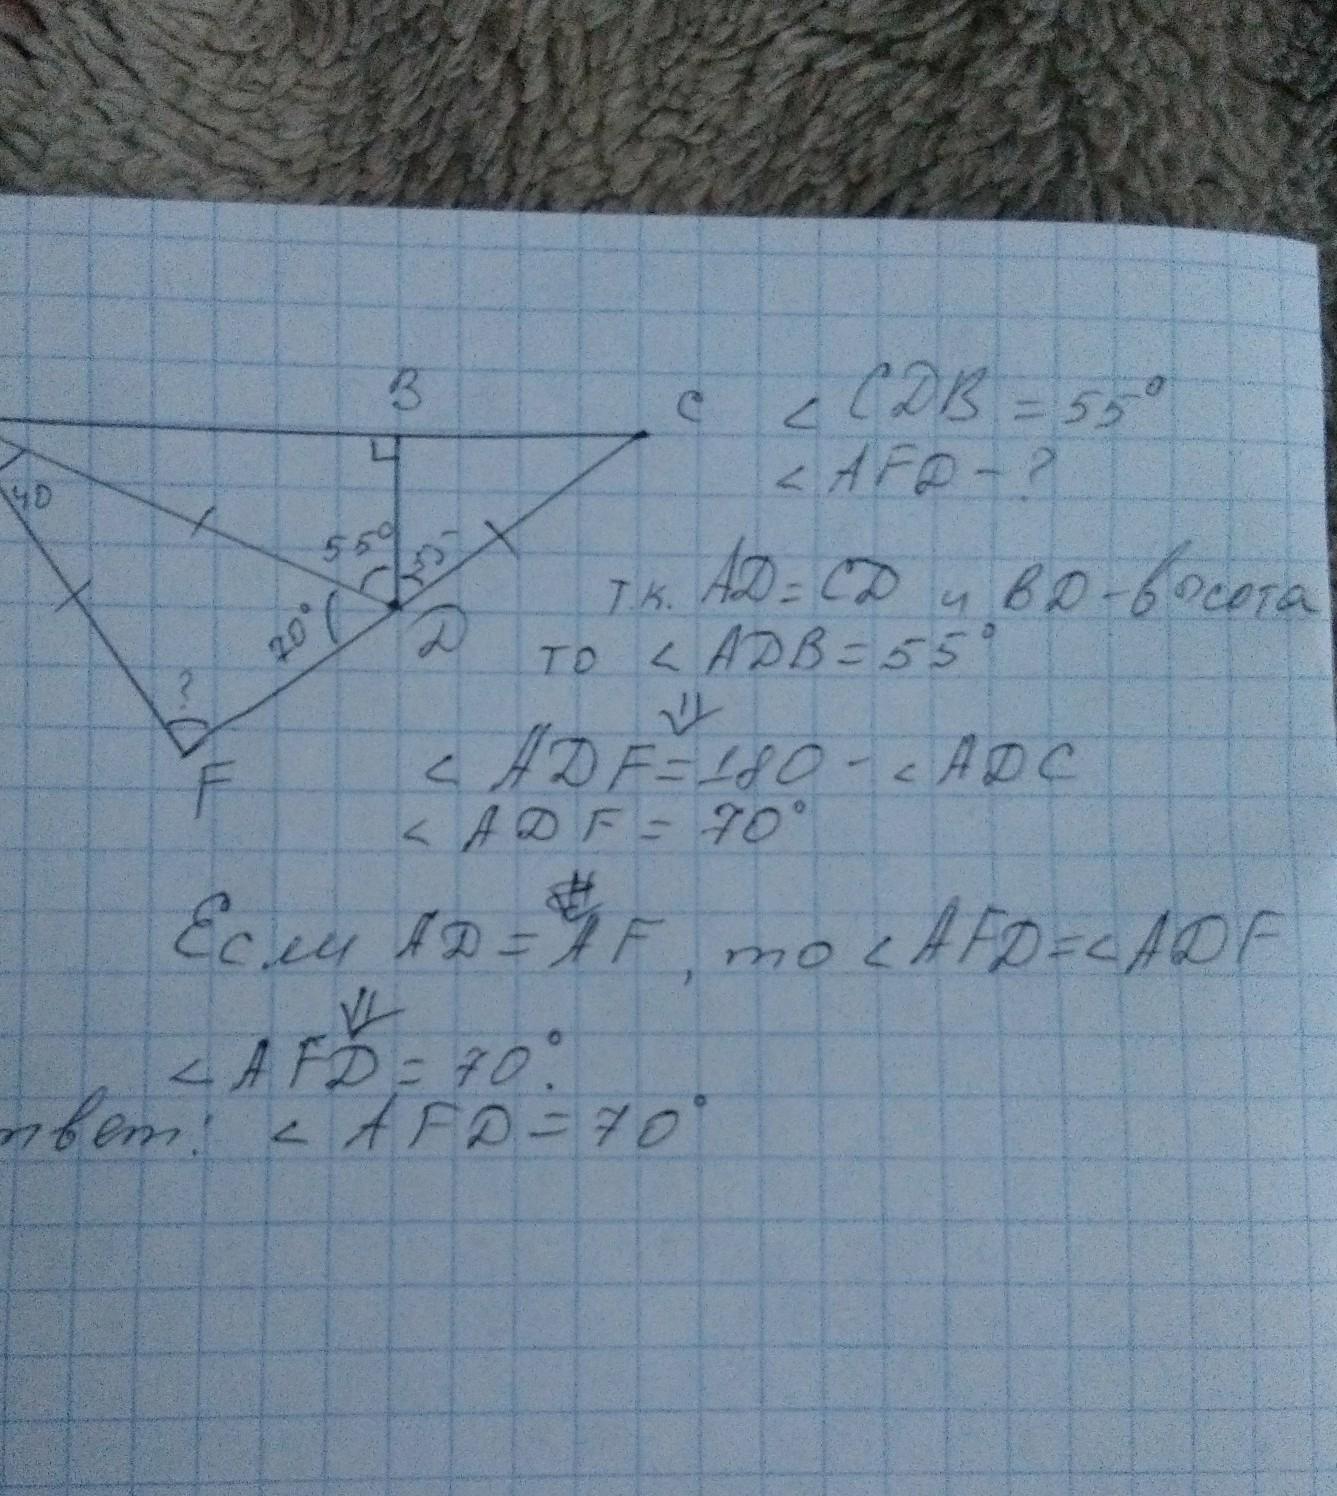 B
C
< CDB = 55°
< AFD - ?
40
55°
55
70°
D
?
F
т.к. AD = CD и BD - высота
то < ADB = 55°
⇓
< ADF = 180 - < ADC
< ADF = 70°
Если AD = AF, то < AFD = < ADF
⇓
< AFD = 70°.
твет: < AFD = 70°